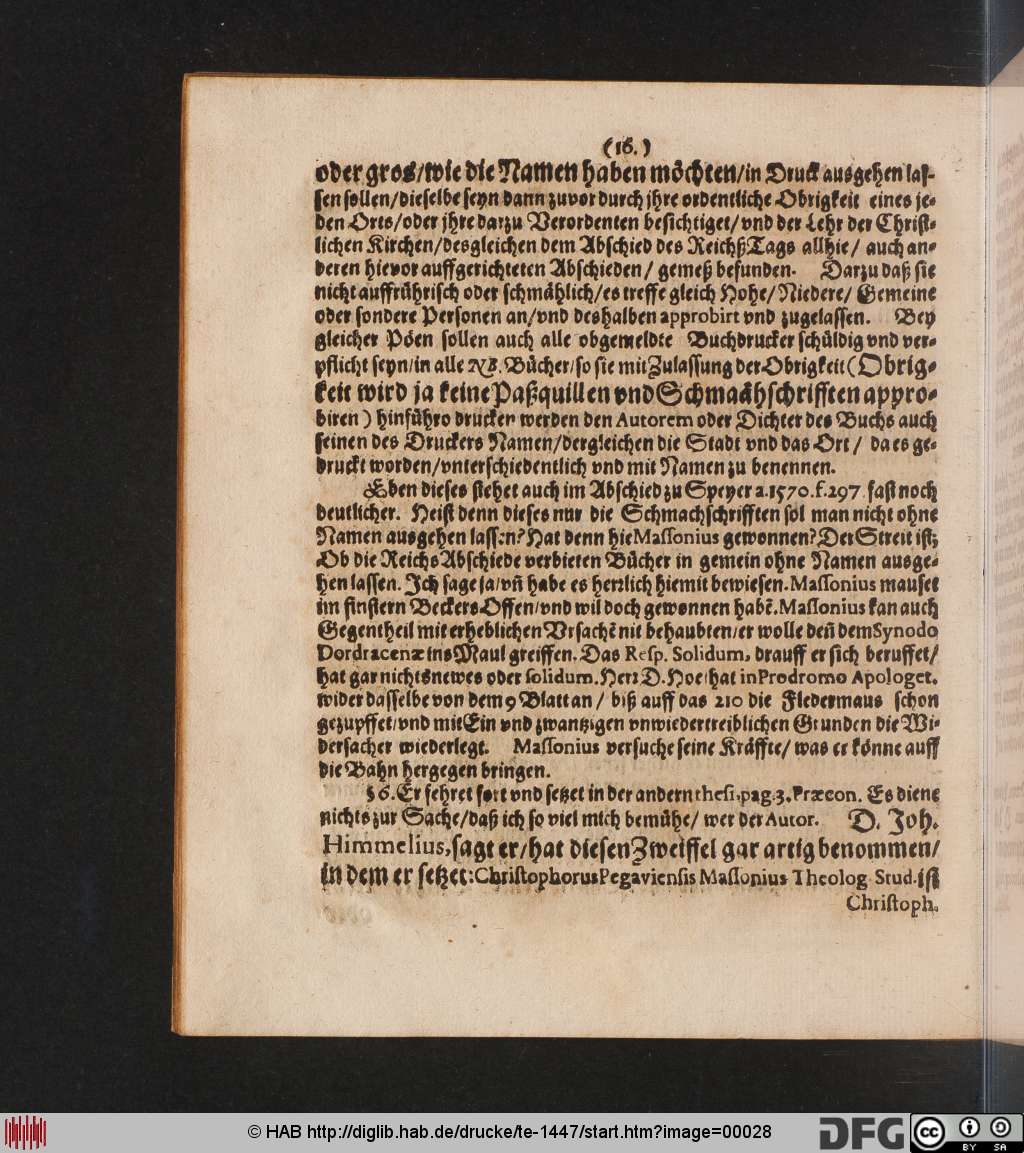 (16.)
oder gros/wie die Namen haben möchten/in Druck ausgehen las-
sen sollen/dieselbe seyn dann zuvor durch jhre ordentliche Obrigkeit eines je-
den Orts/oder jhre darzu Verordenten besichtiget/vnd der Lehr der Christ-
lichen Kirchen/desgleichen dem Abschied des ReichßTags allhie/ auch an-
deren hievor auffgerichteten Abschieden/ gemeß befunden. Darzu daß sie
nicht auffrührisch oder schmählich/es treffe gleich Hohe/Niedere/ Gemeine
oder sondere Personen an/vnd deshalben approbirt vnd zugelassen. Bey
gleicher Pöen sollen auch alle obgemeldte Buchdrucker schüldig vnd ver-
pflicht seyn/in alle NB. Bücher/so sie mit Zulassung der Obrigkeit (Obrig-
keit wird ja keine Paßquillen vnd Schmaähschrifften appro-
biren) hinführo drucken werden den Autorem oder Dichter des Buchs auch
seinen des Druckers Namen/dergleichen die Stadt vnd das Ort/ da es ge-
druckt worden/vnterschiedentlich vnd mit Namen zu benennen.
Eben dieses stehet auch im Abschied zu Speyer a.1570.f.297. fast noch
deutlicher. Heist denn dieses nur die Schmachschrifften sol man nicht ohne
Namen ausgehen lassen? Hat denn hie Massonius gewonnen? Der Streit ist;
Ob die Reichs Abschiede verbieten Bücher in gemein ohne Namen ausge-
hen lassen. Ich sage ja/vn̄ habe es hertzlich hiemit bewiesen. Massonius mauset
im finstern Beckers Offen/vnd wil doch gewonnen habē. Massonius kan auch
Gegentheil mit erheblichen Vrsachē nit behaubten/er wolle den̄ dem Synodo
Dordracenæ ins Maul greiffen. Das Resp. Solidum, drauff er sich beruffet/
hat gar nichts newes oder solidum. Herr D. Hoe/hat in Prodromo Apologet.
wider dasselbe von dem 9 Blatt an/ biß auff das 210 die Fledermaus schon
gezupffet/vnd mit Ein vnd zwantzigen vnwiedertreiblichen Grunden die Wi-
dersacher wiederlegt. Massonius versuche seine Kräffte/ was er könne auff
die Bahn hergegen bringen.
§ 6. Er fehret fort vnd setzet in der andern thesi, pag. 3. Præcon. Es diene
nichts zur Sache/daß ich so viel mich bemühe/ wer der Autor. D. Joh.
Himmelius, sagt er/hat diesen Zweiffel gar artig benommen/
in dem er setzet: Christophorus Pegaviensis Massonius Theolog. Stud. ist
Christoph.
© HAB http://diglib.hab.de/drucke/te-1447/start.htm?image=00028
DFG
cc BY SA